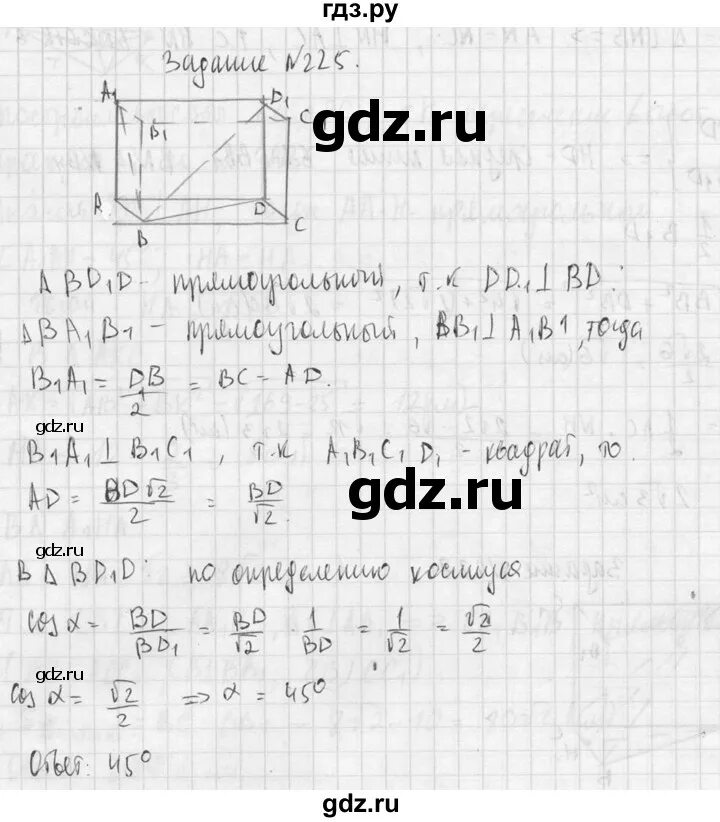 гдз.ру
Задание №225.
A1
D1
B1
C1
gdz.ru
A
D
B
C
Δ BD1D - прямоугольный, т.к DD1⊥BD:
ΔBA1B1 - прямоугольный, BB1⊥A1B1, тогда
B1A1 = DB/2 = BC = AD.
gdz.ru
B1A1⊥B1C1, т.к A1B1C1D1 - квадрат, то.
AD = BD√2/2 = BD/√2.
gdz.ru
gdz.ru
В Δ BD1D: по определению косинуса
gdz.ru
cos α = BD/BD1 = BD/√2 · 1/BD = 1/√2 = √2/2
gdz.ru
cos α = √2/2 => α = 45°
gdz.ru
Ответ: 45°
gdz.ru
gdz.ru